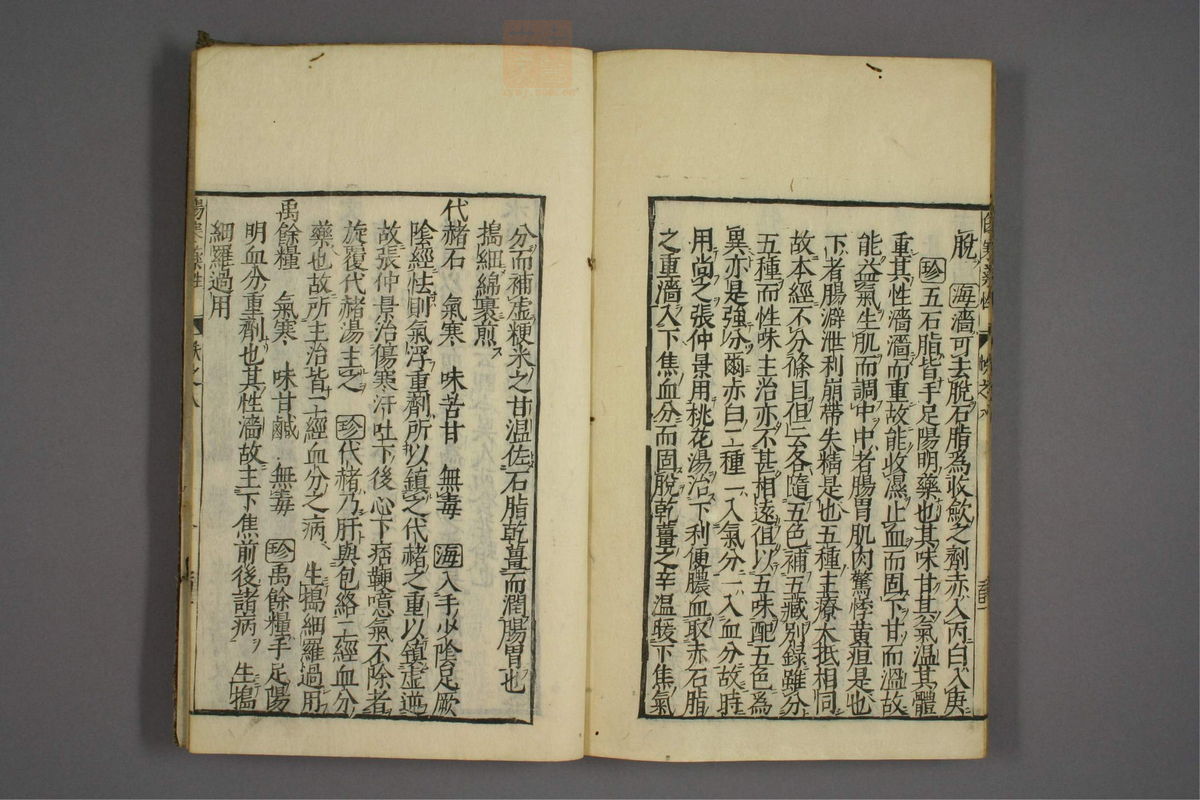 脫 海濇可去脫石脂為收斂之劑赤入丙白入庚
珍五石脂皆手足陽明藥也其味甘其氣温其體
重其性濇濇而重故能收濕止血而固下甘而温故
能益氣生肌而調中中者腸胃肌肉驚悸黄疸是也
下者腸澼泄利崩帶失精是也五種主療大抵相同
故本經不分條目但云各隨五色補五藏别録雖分
五種而性味主治亦不甚相遠但以五味配五色爲
異亦是強分爾赤白二種一入氣分一入血分故時
用尚之張仲景用桃花湯治下利便膿血取赤石脂
之重濇入下焦血分而固脫乾薑之辛温暖下焦氣
分而補虚粳米之甘温佐石脂乾薑而潤腸胃也
搗細綿裹煎
代赭石 氣寒 味苦甘 無毒 海入手少陰足厥
陰經怯則氣浮重劑所以鎮之代赭之重以鎮虚逆
故張仲景治傷寒汗吐下後心下痞鞕噫氣不除者
旋覆代赭湯主之 珍代赭乃肝與包絡二經血分
藥也故所主治皆二經血分之病 生搗細羅過用
禹餘糧 氣寒 味甘鹹 無毒 珍禹餘糧手足陽
明血分重劑也其性濇故主下焦前後諸病 生搗
細羅過用